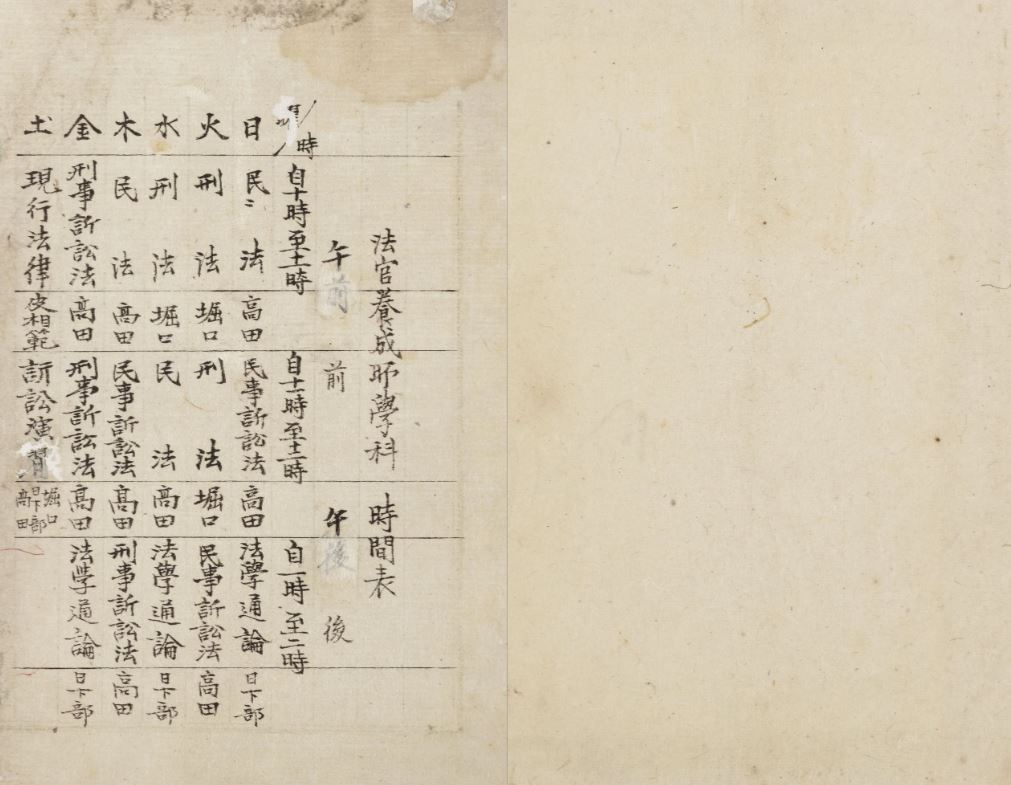 法官養成師學科 時間表
午前 前 午後 後
時 自十時至十一時 自十一時至十二時 自一時至二時
日 民ニ法 高田 民事訴訟法 高田 法學通論 日下部
火 刑法 堀口 刑法 堀口 民事訴訟法 高田
水 刑法 堀口 民法 高田 法學通論 日下部
木 民法 高田 民事訴訟法 高田 刑事訴訟法 高田
金 刑事訴訟法 高田 刑事訴訟法 高田 法學通論 日下部
土 現行法律 皮相範 訴訟演習 堀口 日下部 高田